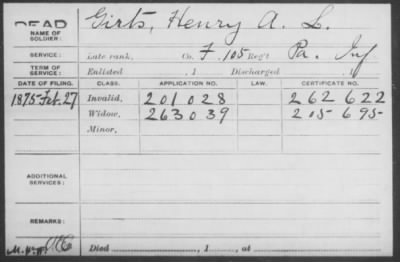 DEAD
NAME OF SOLDIER: Girts, Henry A. L.
SERVICE: Late rank, Co. F. 105 Reg't Pa. Inf
TERM OF SERVICE: Enlisted , 1 Discharged , 1
DATE OF FILING. CLASS. APPLICATION NO. LAW. CERTIFICATE NO.
1875 Feb. 27 Invalid, 201028 262622
Widow, 263039 205695
Minor,
ADDITIONAL SERVICES:
REMARKS:
Died , 1 , at